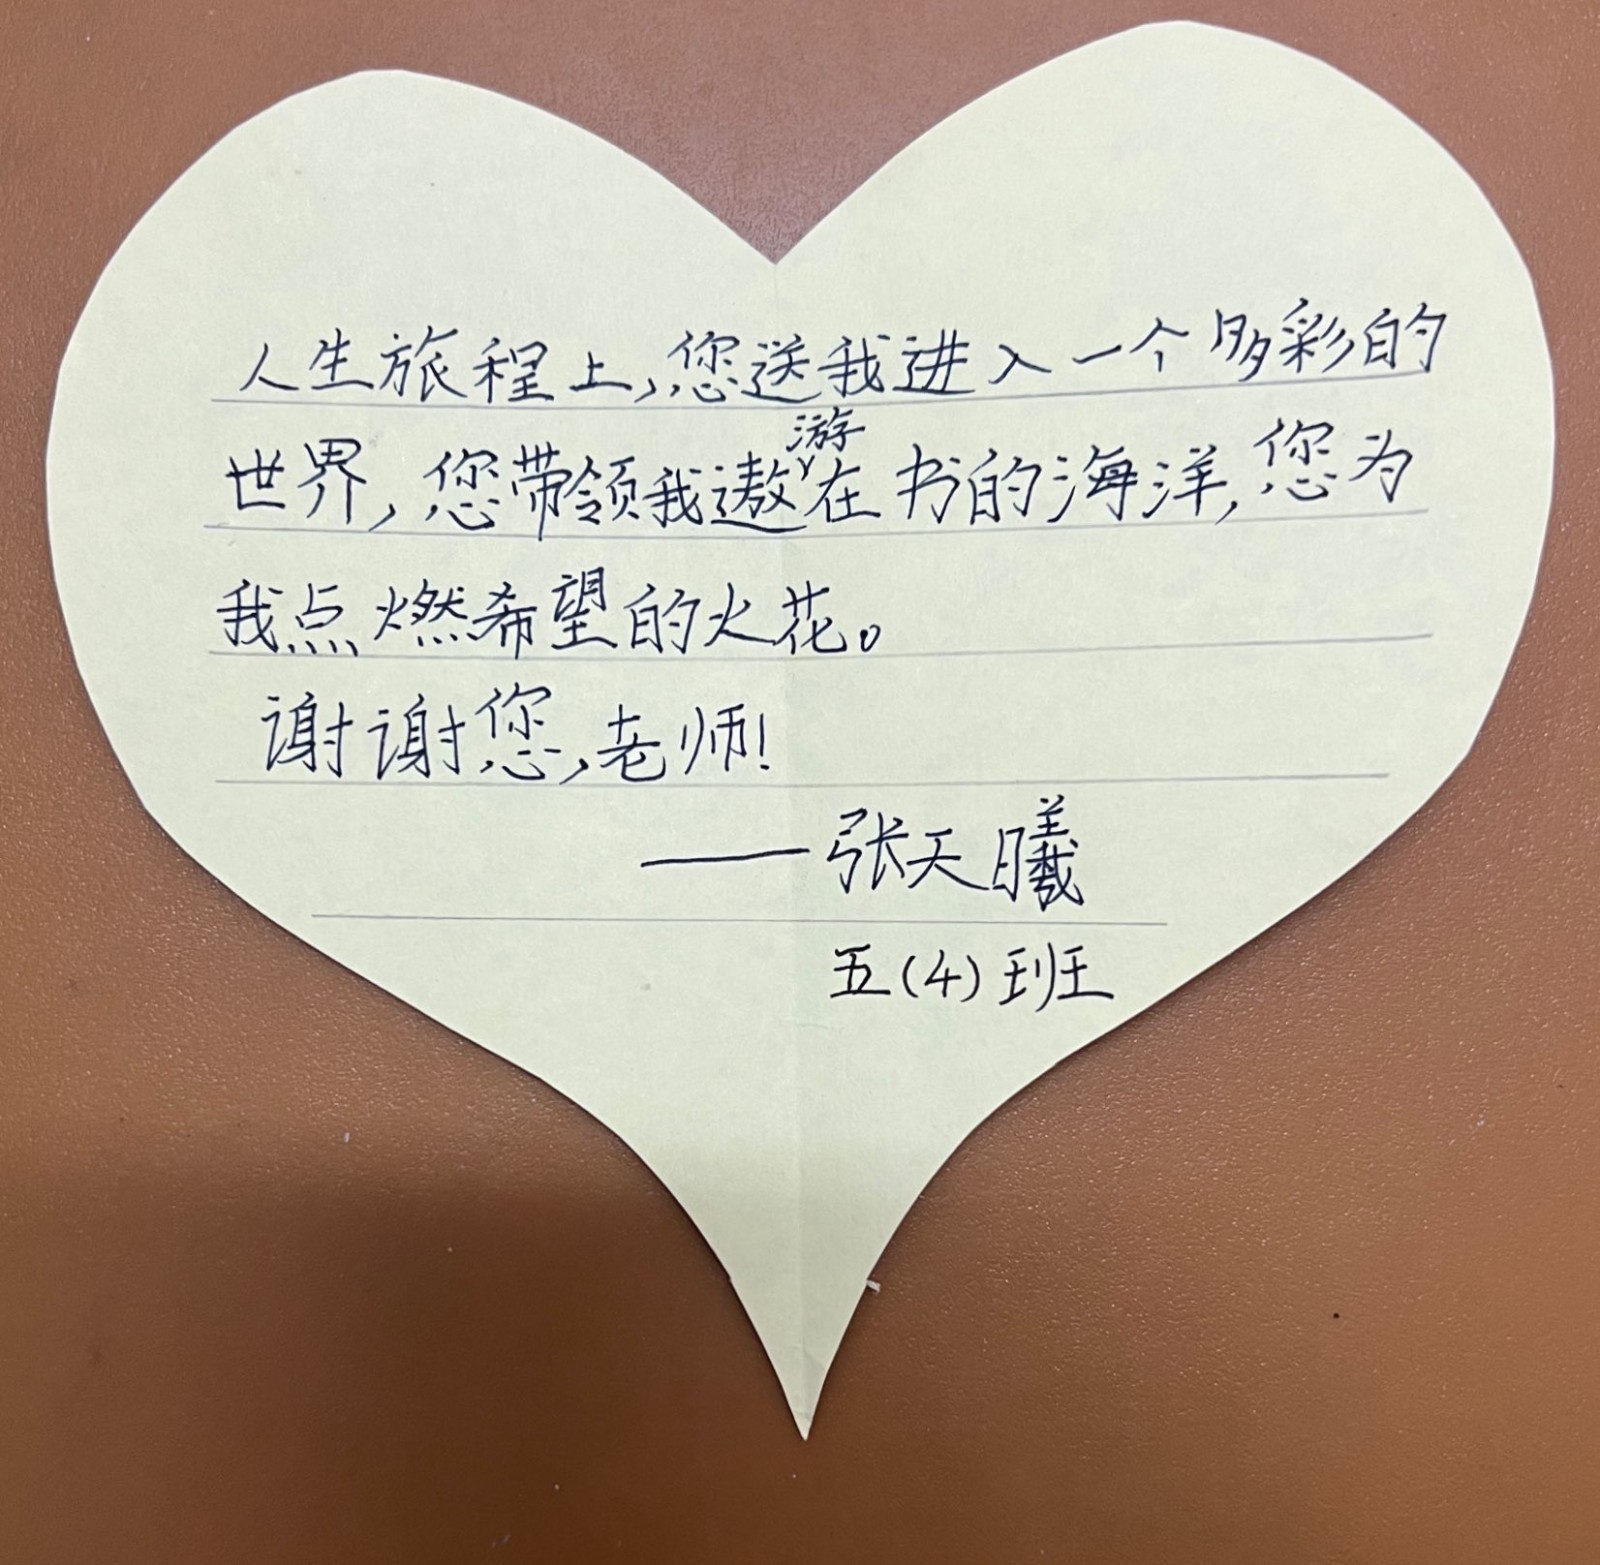 人生旅程上,您送我进入一个多彩的
世界,您带领我遨游在书的海洋,您为
我点燃希望的火花。
谢谢您,老师!
——张天曦
五(4)班